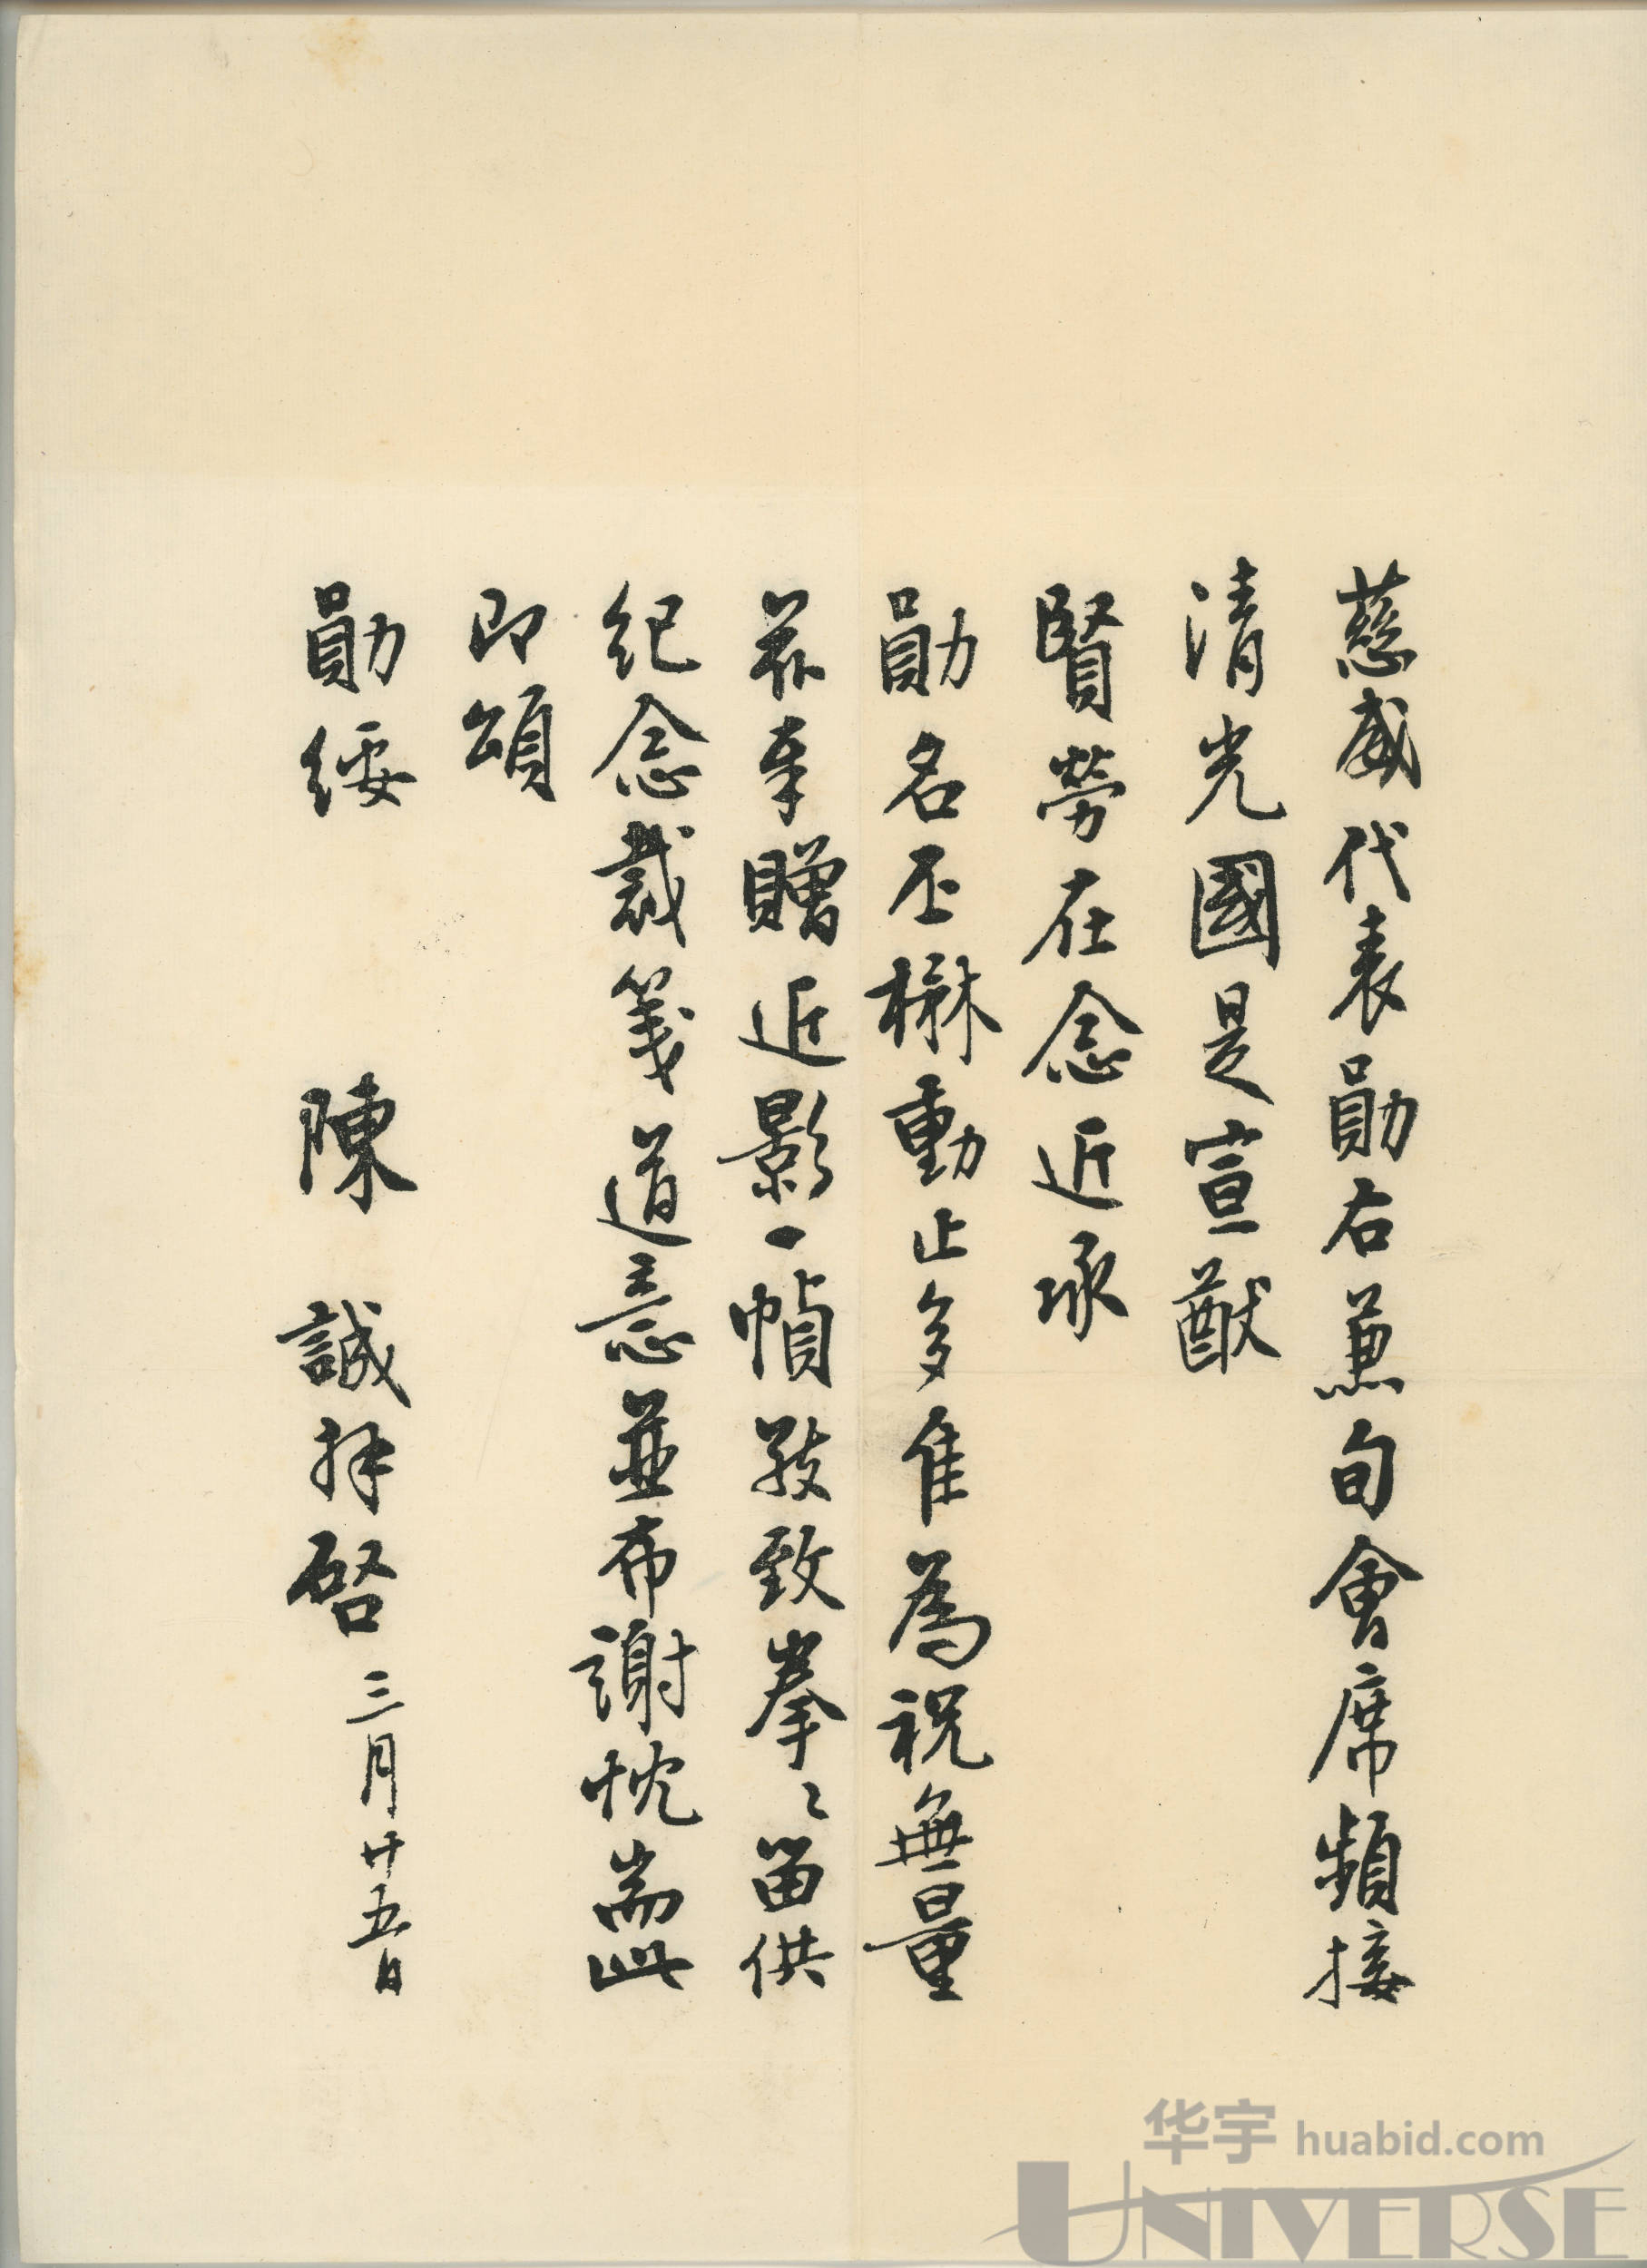 慈威代表勛右兼旬會席頻接
清光國是宣猷
賢勞在念近承
勛名丕楙動止多隹為祝無量
茲奉贈近影一幀敬致拳〻留供
紀念裁箋道意並布謝忱耑此
即頌
勛綏
陳誠拜啓三月廿五日
华宇 huabid.com
UNIVERSE